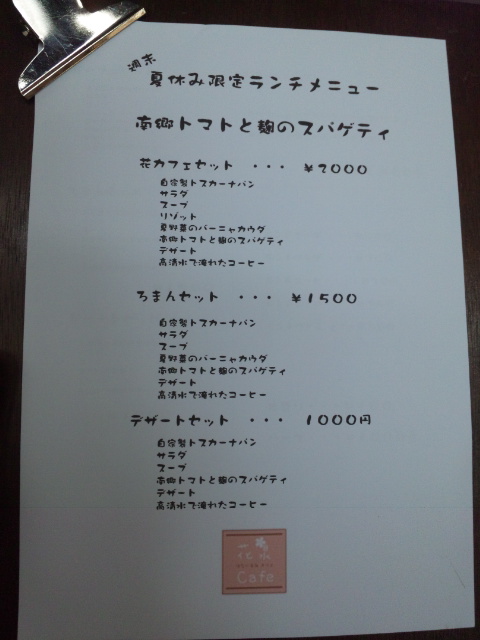 週末
夏休み限定ランチメニュー
南郷トマトと麹のスパゲティ
花カフェセット ・・・ ￥2000
自家製トスカーナパン
サラダ
スープ
リゾット
夏野菜のバーニャカウダ
南郷トマトと麹のスパゲティ
デザート
高清水で淹れたコーヒー
ろまんセット ・・・ ￥1500
自家製トスカーナパン
サラダ
スープ
夏野菜のバーニャカウダ
南郷トマトと麹のスパゲティ
デザート
高清水で淹れたコーヒー
デザートセット ・・・ 1000円
自家製トスカーナパン
サラダ
スープ
南郷トマトと麹のスパゲティ
デザート
高清水で淹れたコーヒー
Cafe